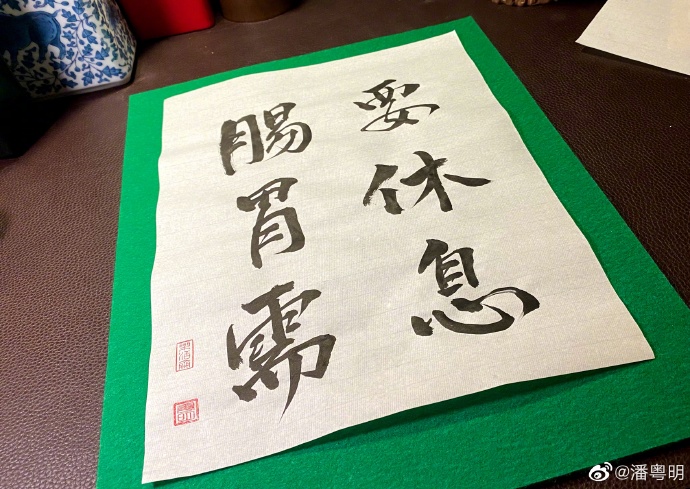 腸胃需
要休息
@潘粤明